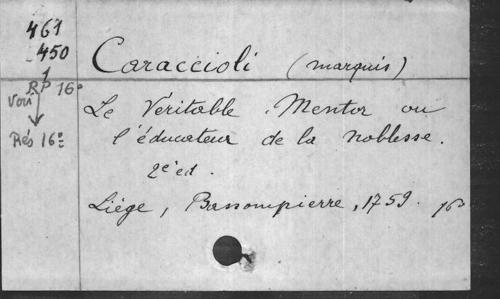 461
450
1
RP 16º
Voir
Rés 16º
Caraccioli (marquis)
Le Véritable Mentor ou
l'éducateur de la noblesse.
2e éd.
Liége, Bassompierre, 1759.